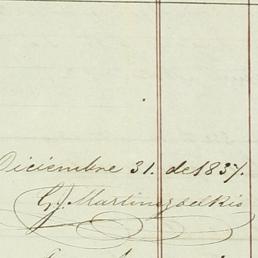 Diciembre 31. de 1837.
G. J. Martinez del Rio